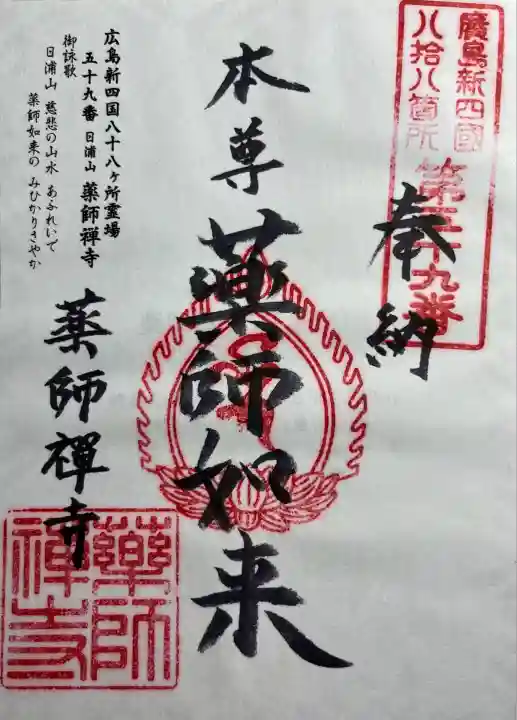 廣島新四國
八拾八箇所
第五十九番
奉納
本尊
薬師如来
広島新四国八十八ヶ所霊場
五十九番 日浦山 薬師禅寺
御詠歌
日浦山 慈悲の山水 あふれいで
薬師如来の みひかりさやか
薬師禪寺
藥師
禅寺